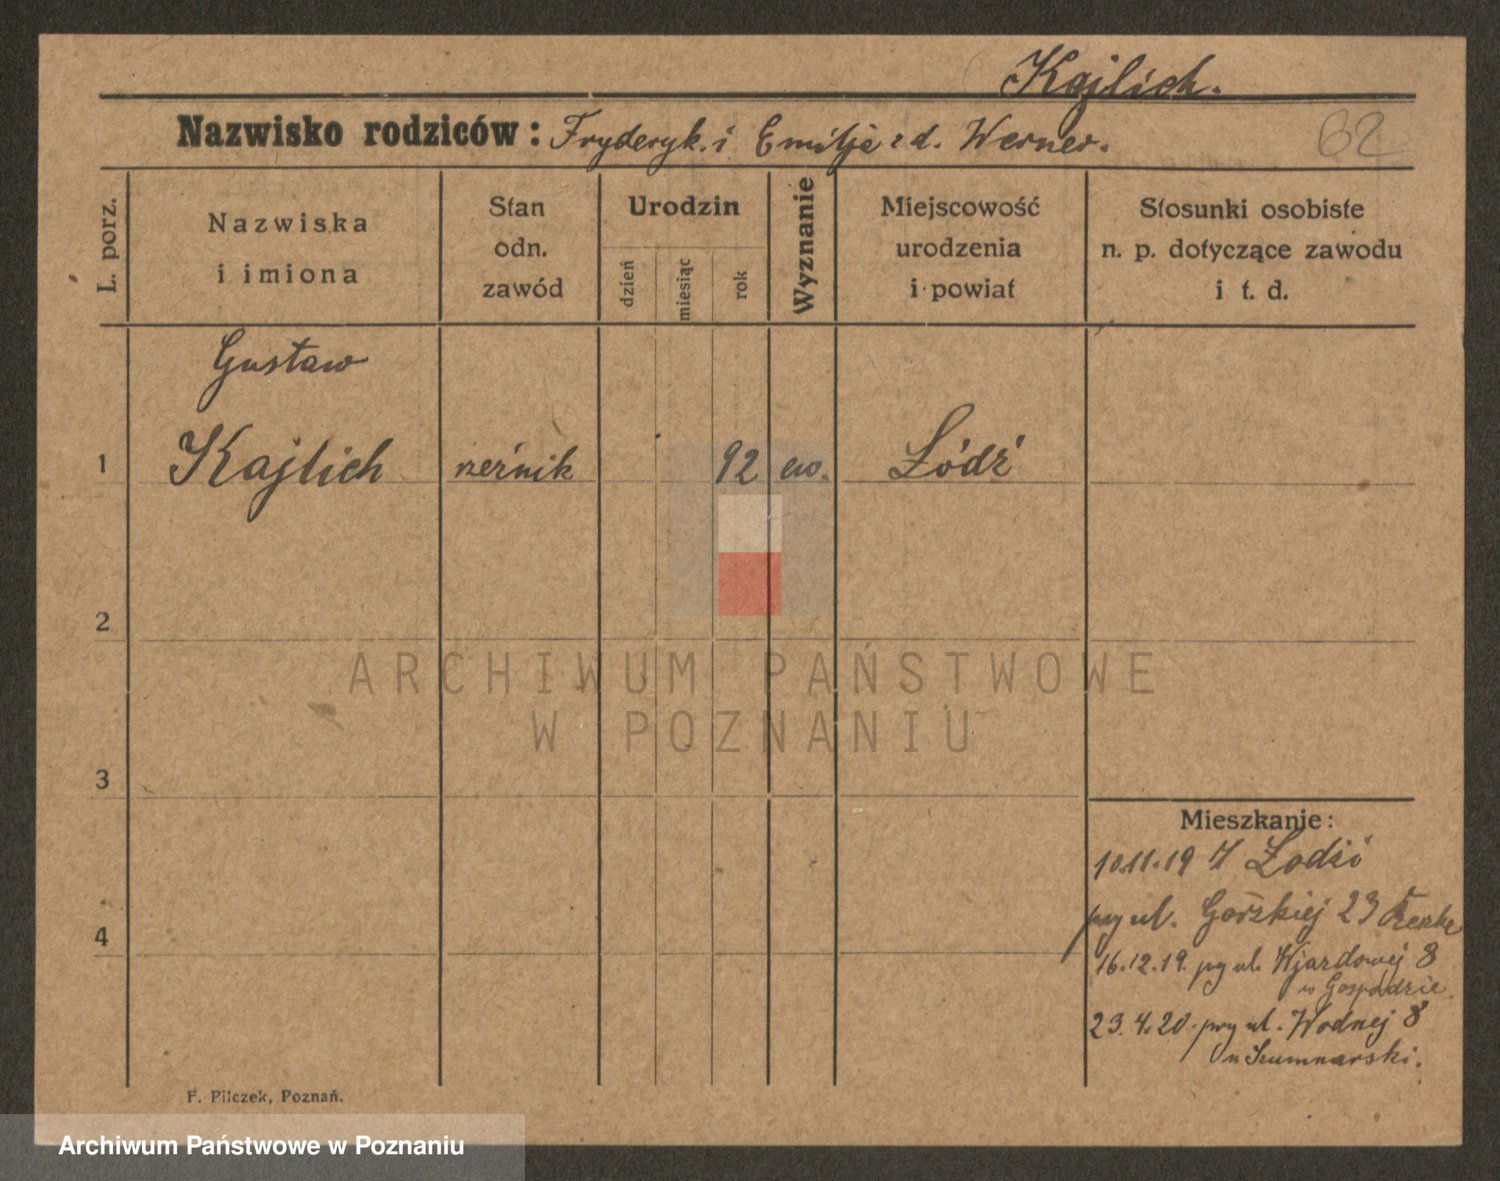 Kajlich.
Nazwisko rodziców: Fryderyk. i Emilja z d. Werner.
62
L. porz.
Nazwiska
i imiona
Stan
odn.
zawód
Urodzin
dzień
miesiąc
rok
Wyznanie
Miejscowość
urodzenia
i powiat
Stosunki osobiste
n. p. dotyczące zawodu
i t. d.
Gustaw
1 Kajlich rzeźnik 92 ew. Łódź
2
ARCHIWUM PAŃSTWOWE
W POZNANIU
3
Mieszkanie:
10.11.19 Z Łodzi
przy ul. Górskiej 23
4
16.12.19. przy ul. Wjazdowej 8
w Gospodzie.
23.4.20. przy ul. Wodnej 8
u
F. Pilczek, Poznań.
Archiwum Państwowe w Poznaniu